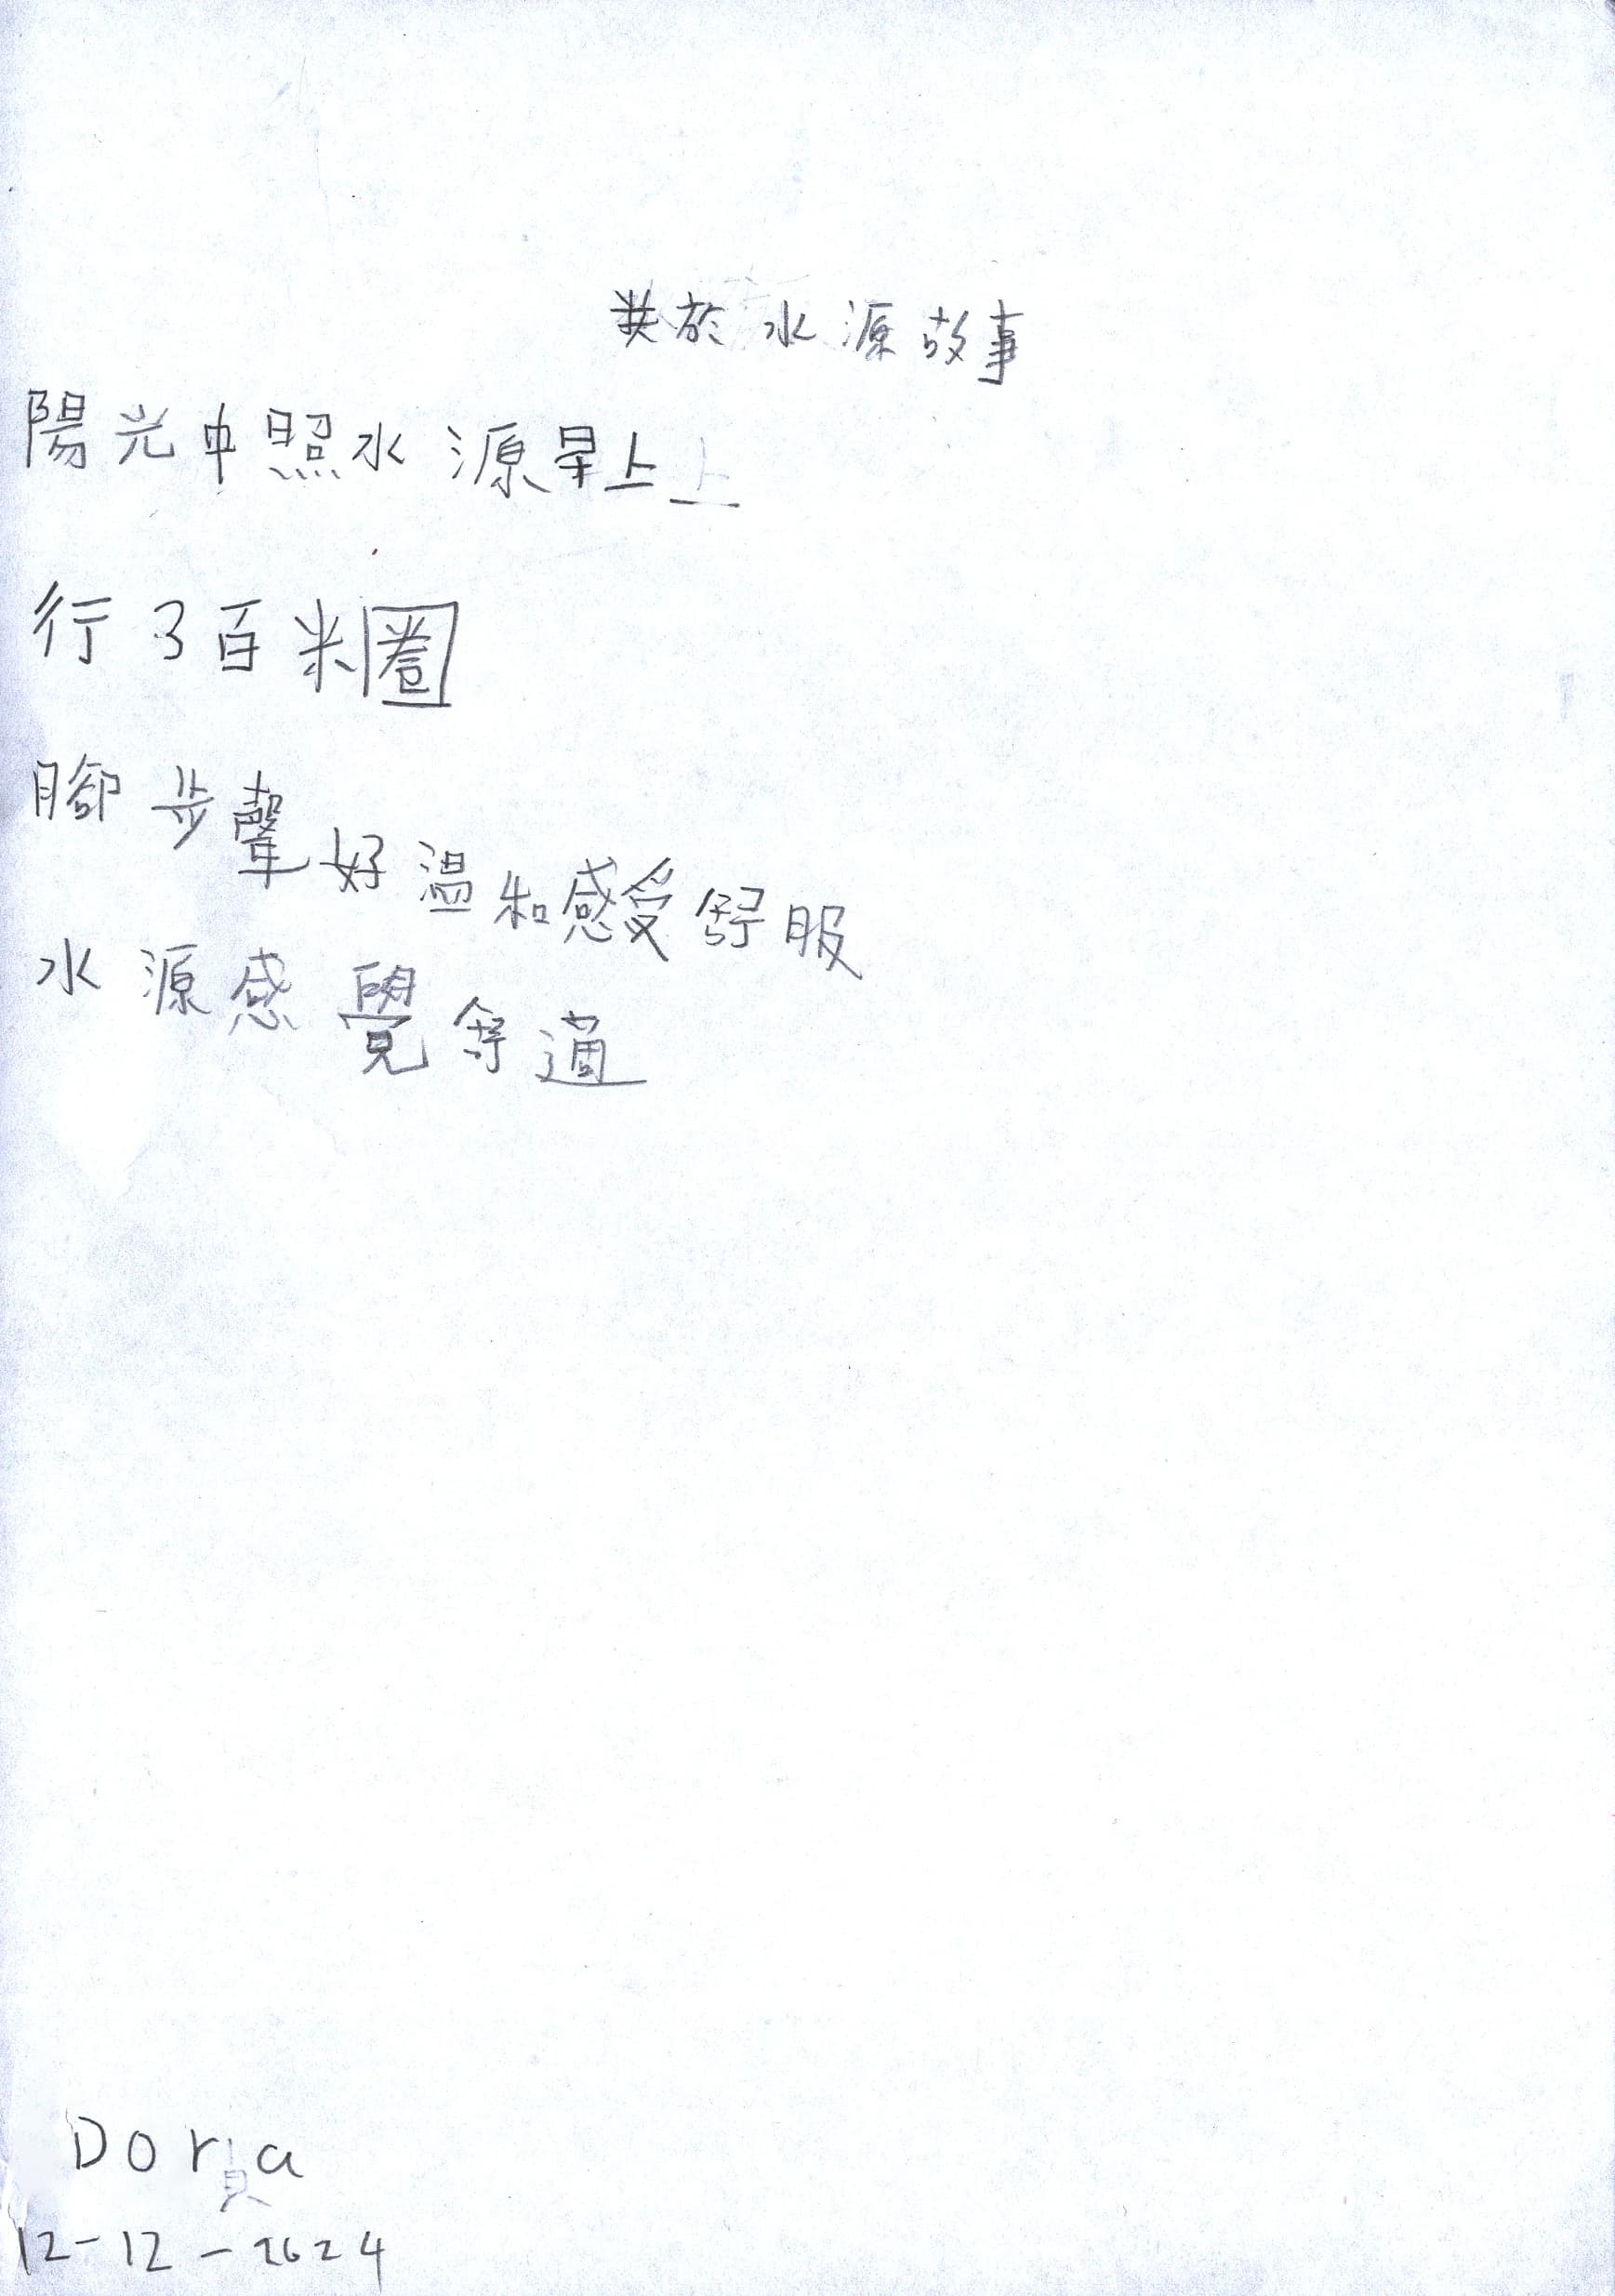 共於水源故事
陽光中照水源早上
行3百米圈
腳步聲好溫和感受舒服
水源感覺舒適
Doria
12-12-2024